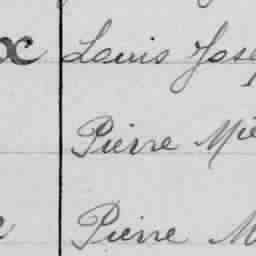 Louis Jose
Pierre Mi
Pierre M